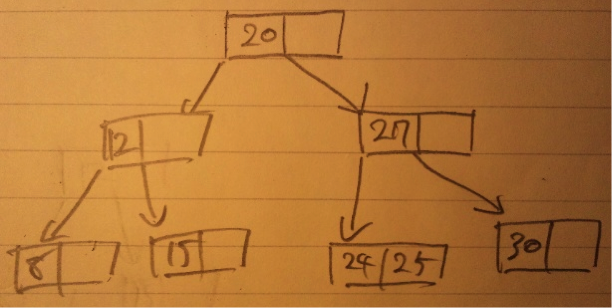 20
12 27
8 15 24 25 30